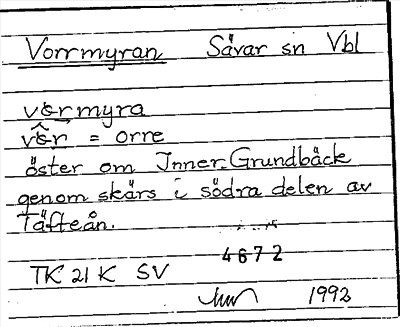 Vorrmyran Sävar sn Vbl
värmyra
vär = orre
öster om Inner-Grundbäck
genom skärs i södra delen av
Täfteån.
4672
TK 21 K SV
1992